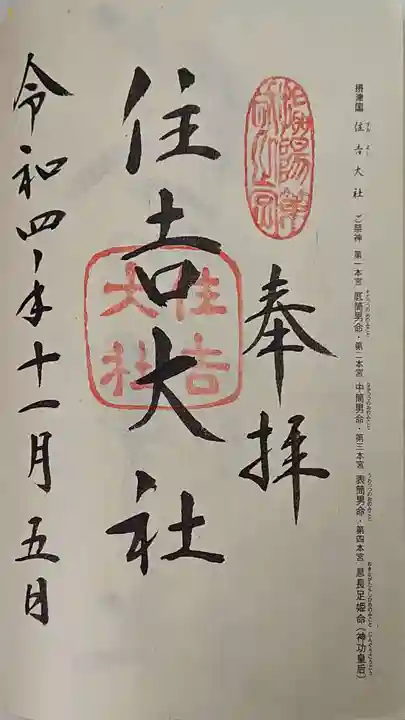 摂津國 住吉大社 ご祭神 第一本宮 底筒男命・第二本宮 中筒男命・第三本宮 表筒男命・第四本宮 息長足姫命(神功皇后)
奉拝
住吉大社
住吉
大社
令和四年十一月五日